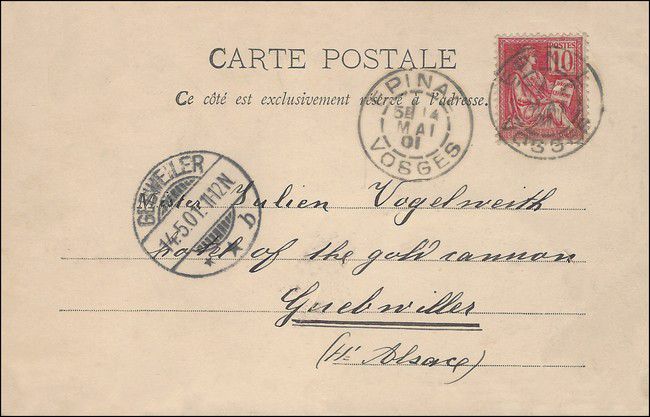 CARTE POSTALE
Ce côté est exclusivement réservé à l'adresse.
POSTES
10
EPINAL
5E 14
MAI
01
VOSGES
GEBWEILER
14.5.01. 11-12N
b
Mister Julien Vogelweith
hotel of the gold cannon
Guebwiller
(Hte Alsace)